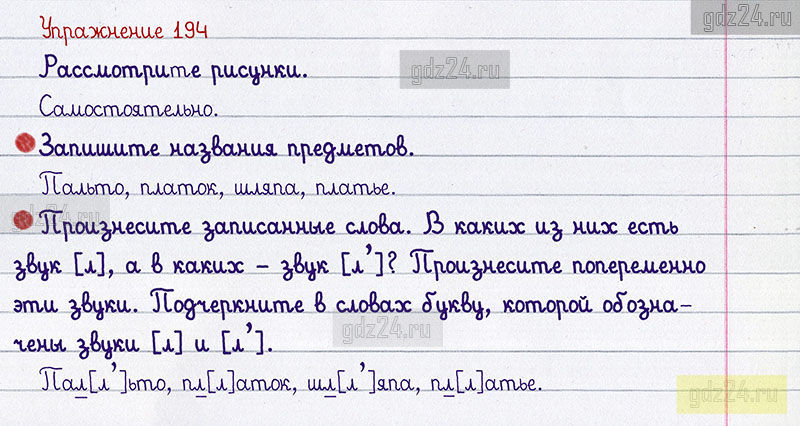 gdz24.ru
Упражнение 194
Рассмотрите рисунки.
gdz24.ru
Самостоятельно.
Запишите названия предметов.
Пальто, платок, шляпа, платье.
gdz24.ru
Произнесите записанные слова. В каких из них есть
звук [л], а в каких – звук [л’]? Произнесите попеременно
эти звуки. Подчеркните в словах букву, которой обозна-
gdz24.ru
чены звуки [л] и [л’].
Пал[л’]ьто, пл[л]аток, шл[л’]япа, пл[л]атье.
gdz24.ru